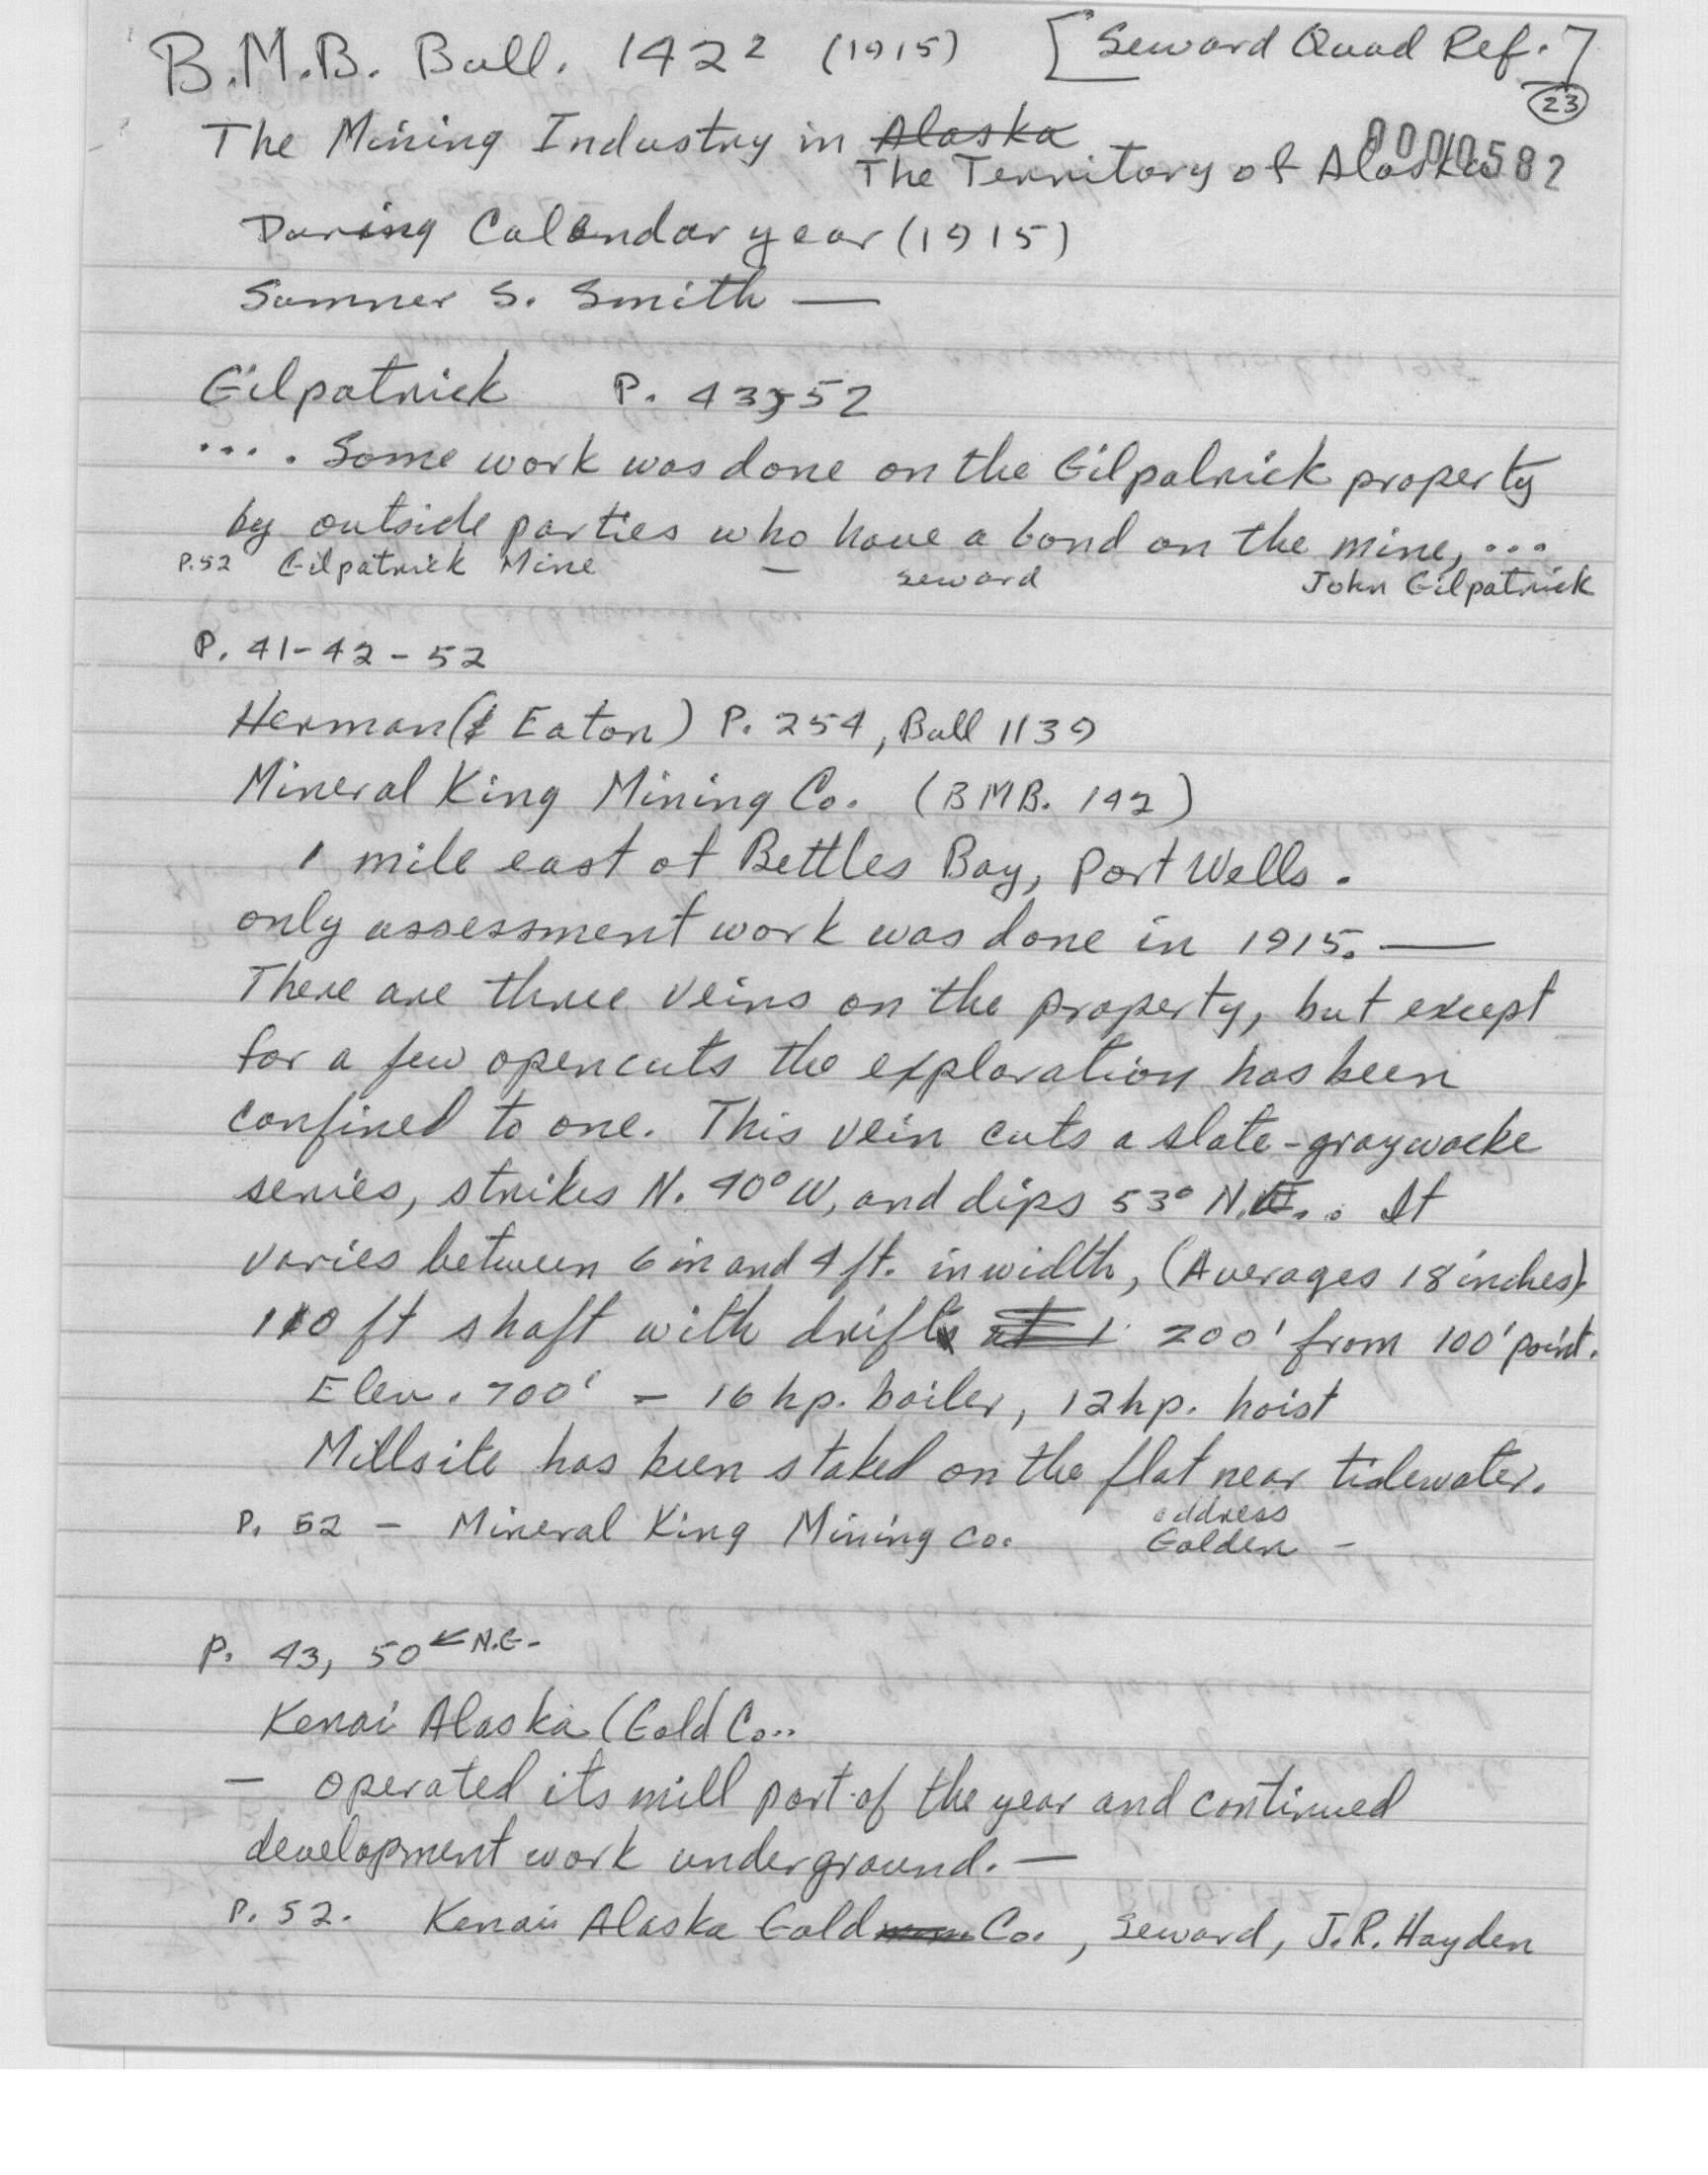 B.M.B. Bull. 142² (1915) [Seward Quad Ref.]
23
The Mining Industry in Alaska
The Territory of Alaska
00000582
During Calendar year (1915)
Sumner S. Smith —
Gilpatrick P. 43,52
.... Some work was done on the Gilpatrick property
by outside parties who have a bond on the mine, ...
P.52 Gilpatrick Mine — Seward John Gilpatrick
P. 41-42-52
Herman (& Eaton) P. 254, Bull 1139
Mineral King Mining Co. (BMB. 142)
1 mile east of Bettles Bay, Port Wells.
only assessment work was done in 1915. —
There are three veins on the property, but except
for a few opencuts the exploration has been
confined to one. This vein cuts a slate-graywacke
series, strikes N. 40° W, and dips 53° N.E.. It
varies between 6 in and 4 ft. in width, (Averages 18 inches)
110 ft shaft with drifts at 1 200' from 100' point.
Elev. 700' - 16 hp. boiler, 12 hp. hoist
Millsite has been staked on the flat near tidewater.
P. 52 - Mineral King Mining Co. address
Golden -
P. 43, 50 ← N.G.
Kenai Alaska (Gold Co..
— operated its mill part of the year and continued
development work underground. —
P. 52. Kenai Alaska Gold Co., Seward, J.R. Hayden